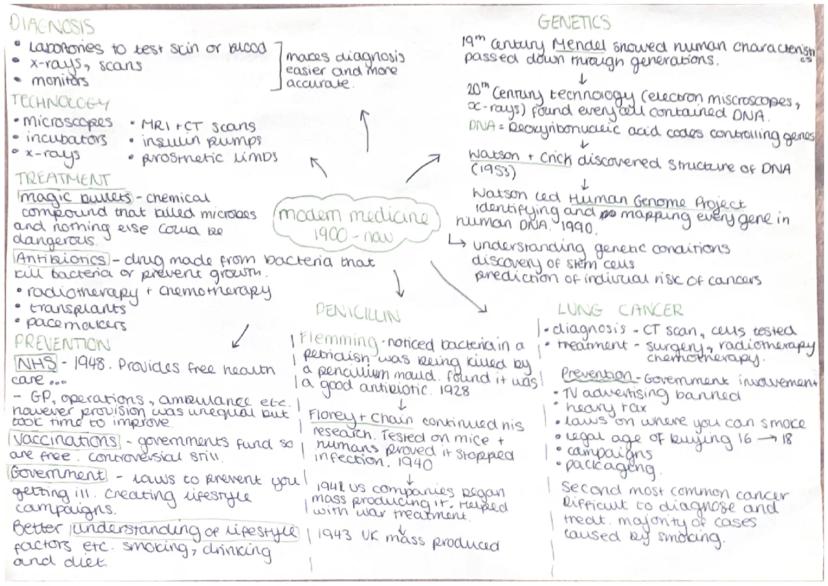 DIAGNOSIS
• Laboratories to test skin or blood
• x-rays, scans
• monitors
makes diagnosis
easier and more
accurate.
TECHNOLOGY
• microscopes
• incubators
• x-rays
• MRI + CT scans
• insulin pumps
• prosthetic limbs
TREATMENT
magic bullets - chemical
compound that killed microbes
and nothing else could be
dangerous.
Antibiotics - drug made from bacteria that
kill bacteria or prevent growth.
• radiotherapy + chemotherapy
• transplants
• pacemakers
PREVENTION
NHS - 1948. Provides free health
care ...
- GP, operations, ambulance etc.
however provision was unequal but
took time to improve.
Vaccinations - governments fund so
are free. controversial still.
Government - laws to prevent you
getting ill. creating lifestyle
campaigns.
Better understanding of lifestyle
factors etc. smoking, drinking
and diet.
modern medicine
1900 - now
PENICILLIN
Flemming - noticed bacteria in a
petridish was being killed by
a penicillium mould. found it was
a good antibiotic. 1928
↓
Florey + Chain continued his
research. Tested on mice +
humans proved it stopped
infection. 1940
↓
1941 US companies began
mass producing it. Helped
with war treatment.
↓
1943 UK mass produced
GENETICS
19th century Mendel showed human characteristics
passed down through generations.
↓
20th century technology (electron miscroscopes,
x-rays) found every cell contained DNA.
DNA = Deoxyribonucleic acid codes controlling genes
↓
Watson + Crick discovered structure of DNA
(1953)
↓
Watson led Human Genome Project
identifying and mapping every gene in
human DNA. 1990.
↳ understanding genetic conditions
discovery of stem cells
prediction of individual risk of cancers
LUNG CANCER
• diagnosis - CT scan, cells tested
• treatment - surgery, radiotherapy
chemotherapy.
Prevention - Government involvement
• TV advertising banned
• heavy tax
• laws on where you can smoke
• legal age of buying 16 → 18
• campaigns
• packaging.
Second most common cancer
Difficult to diagnose and
treat. majority of cases
caused by smoking.